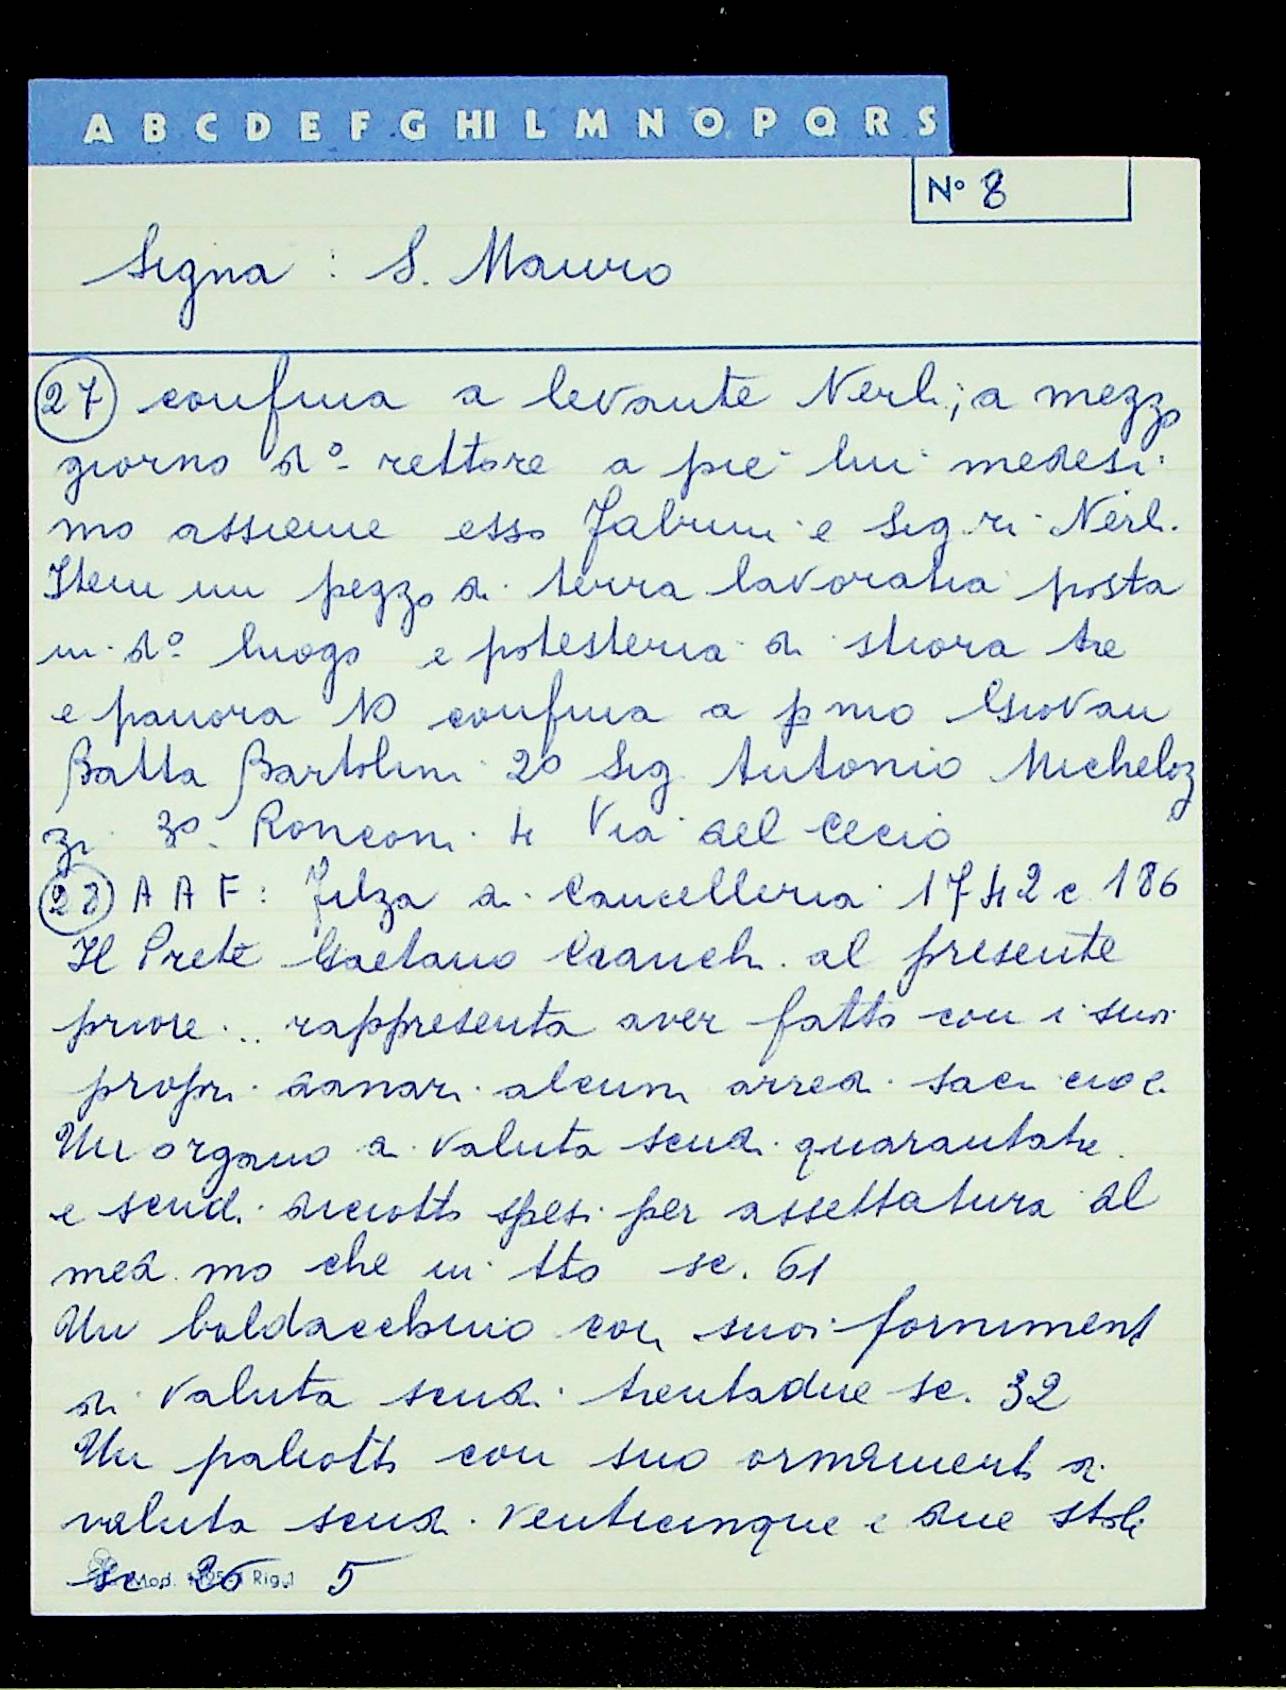 A B C D E F G HI L M N O P Q R S
N° 8
Signa : S. Mauro
27 confina a levante Nerli; a mezzo
giorno d° rettore a pie lui medesi:
mo assieme esso Fabrini e Sig.ri Nerli.
Item un pezzo di terra lavoratia posta
in d° luogo e potesteria di stiora tre
e panora 10 confina a pmo Giovan
Batta Bartolini 2° Sig. Antonio Micheloz
zi 3°. Ronconi 4 Via del Cecio
28 A A F: Filza di Cancelleria 1742 c 186
Il Prete Gaetano Cianchi al presente
priore .. rappresenta aver fatto con i suoi
propri danari alcuni arredi sacri cioè
Un organo di valuta scudi quarantatre
e scudi diciotto spesi per assettatura al
med.mo che in tto sc. 61
Un baldacchino con suoi forniment
di valuta scudi trentadue sc. 32
Un paliotto con suo ornamento di
valuta scudi venticinque e due stoli
sc. 26 5
Mod. Rig.1